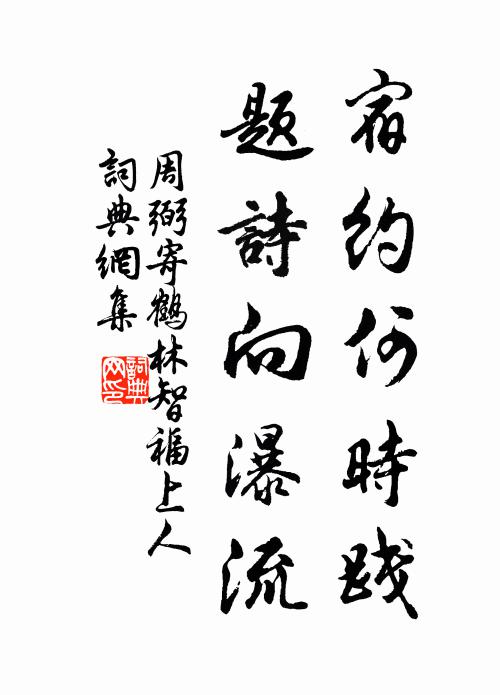 宿約何時踐
題詩向瀑流
周弼寄鶴林智福上人
詞典網集
詞典網印